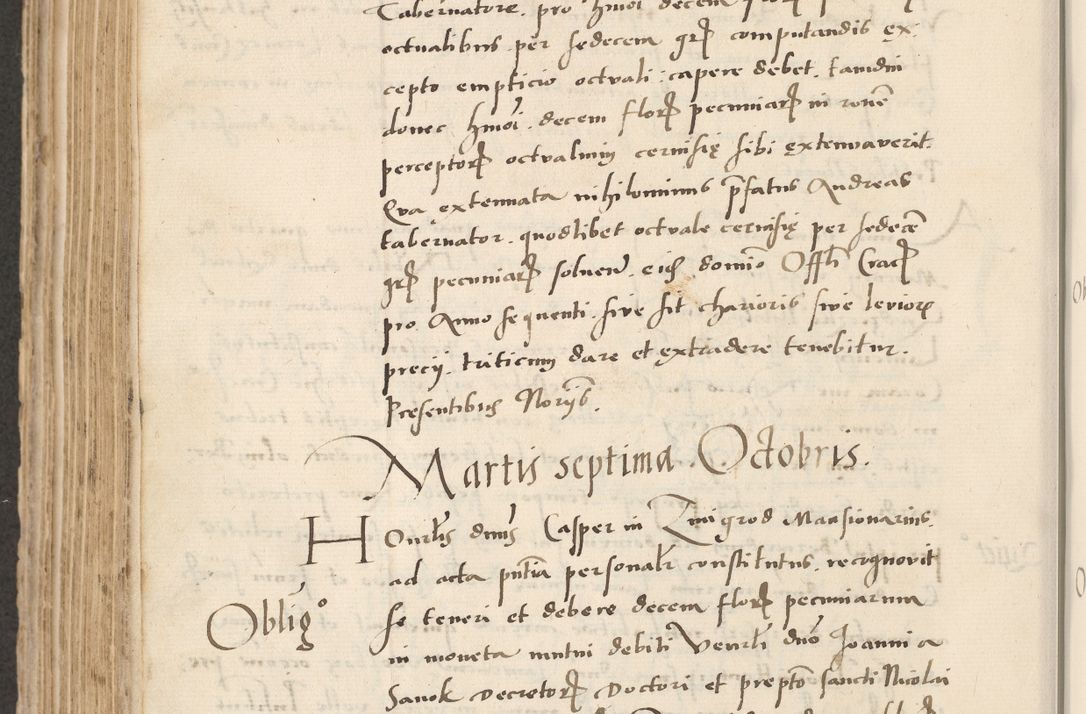 Tabernatore. pro hmoi decem
octualibus per sedecem grꝭ computandis ex:
cepto empticio octuali: capere debet. tamdiu
donec hmoi. decem florꝭ pecuniarꝭ in ronē
perceptorꝭ octualium cervisię sibi extenuaverit.
Qua extenuata nihilominus p̄fatus Andreas
tabernator. quodlibet octuale cervisię per sedecē
grꝭ pecuniarꝭ solven̄. eidē domino Offlī Cracꝭ
pro Anno sequenti. sive sit charioris sive levioris
precij. triticum dare et extradere tenebitur.
Presentibus Norijs.
Martis septima Octobris.
Honrlis dnus Casper in Zmigrod Mansionarius
ad acta pntia personalr constitutus. recognovit
Oblig°
se teneri et debere decem florꝭ pecuniarum
in moneta mutui debiti Venrli dno Joanni a
Sanok Decretorꝭ Doctori et prepto sancti Nicolai